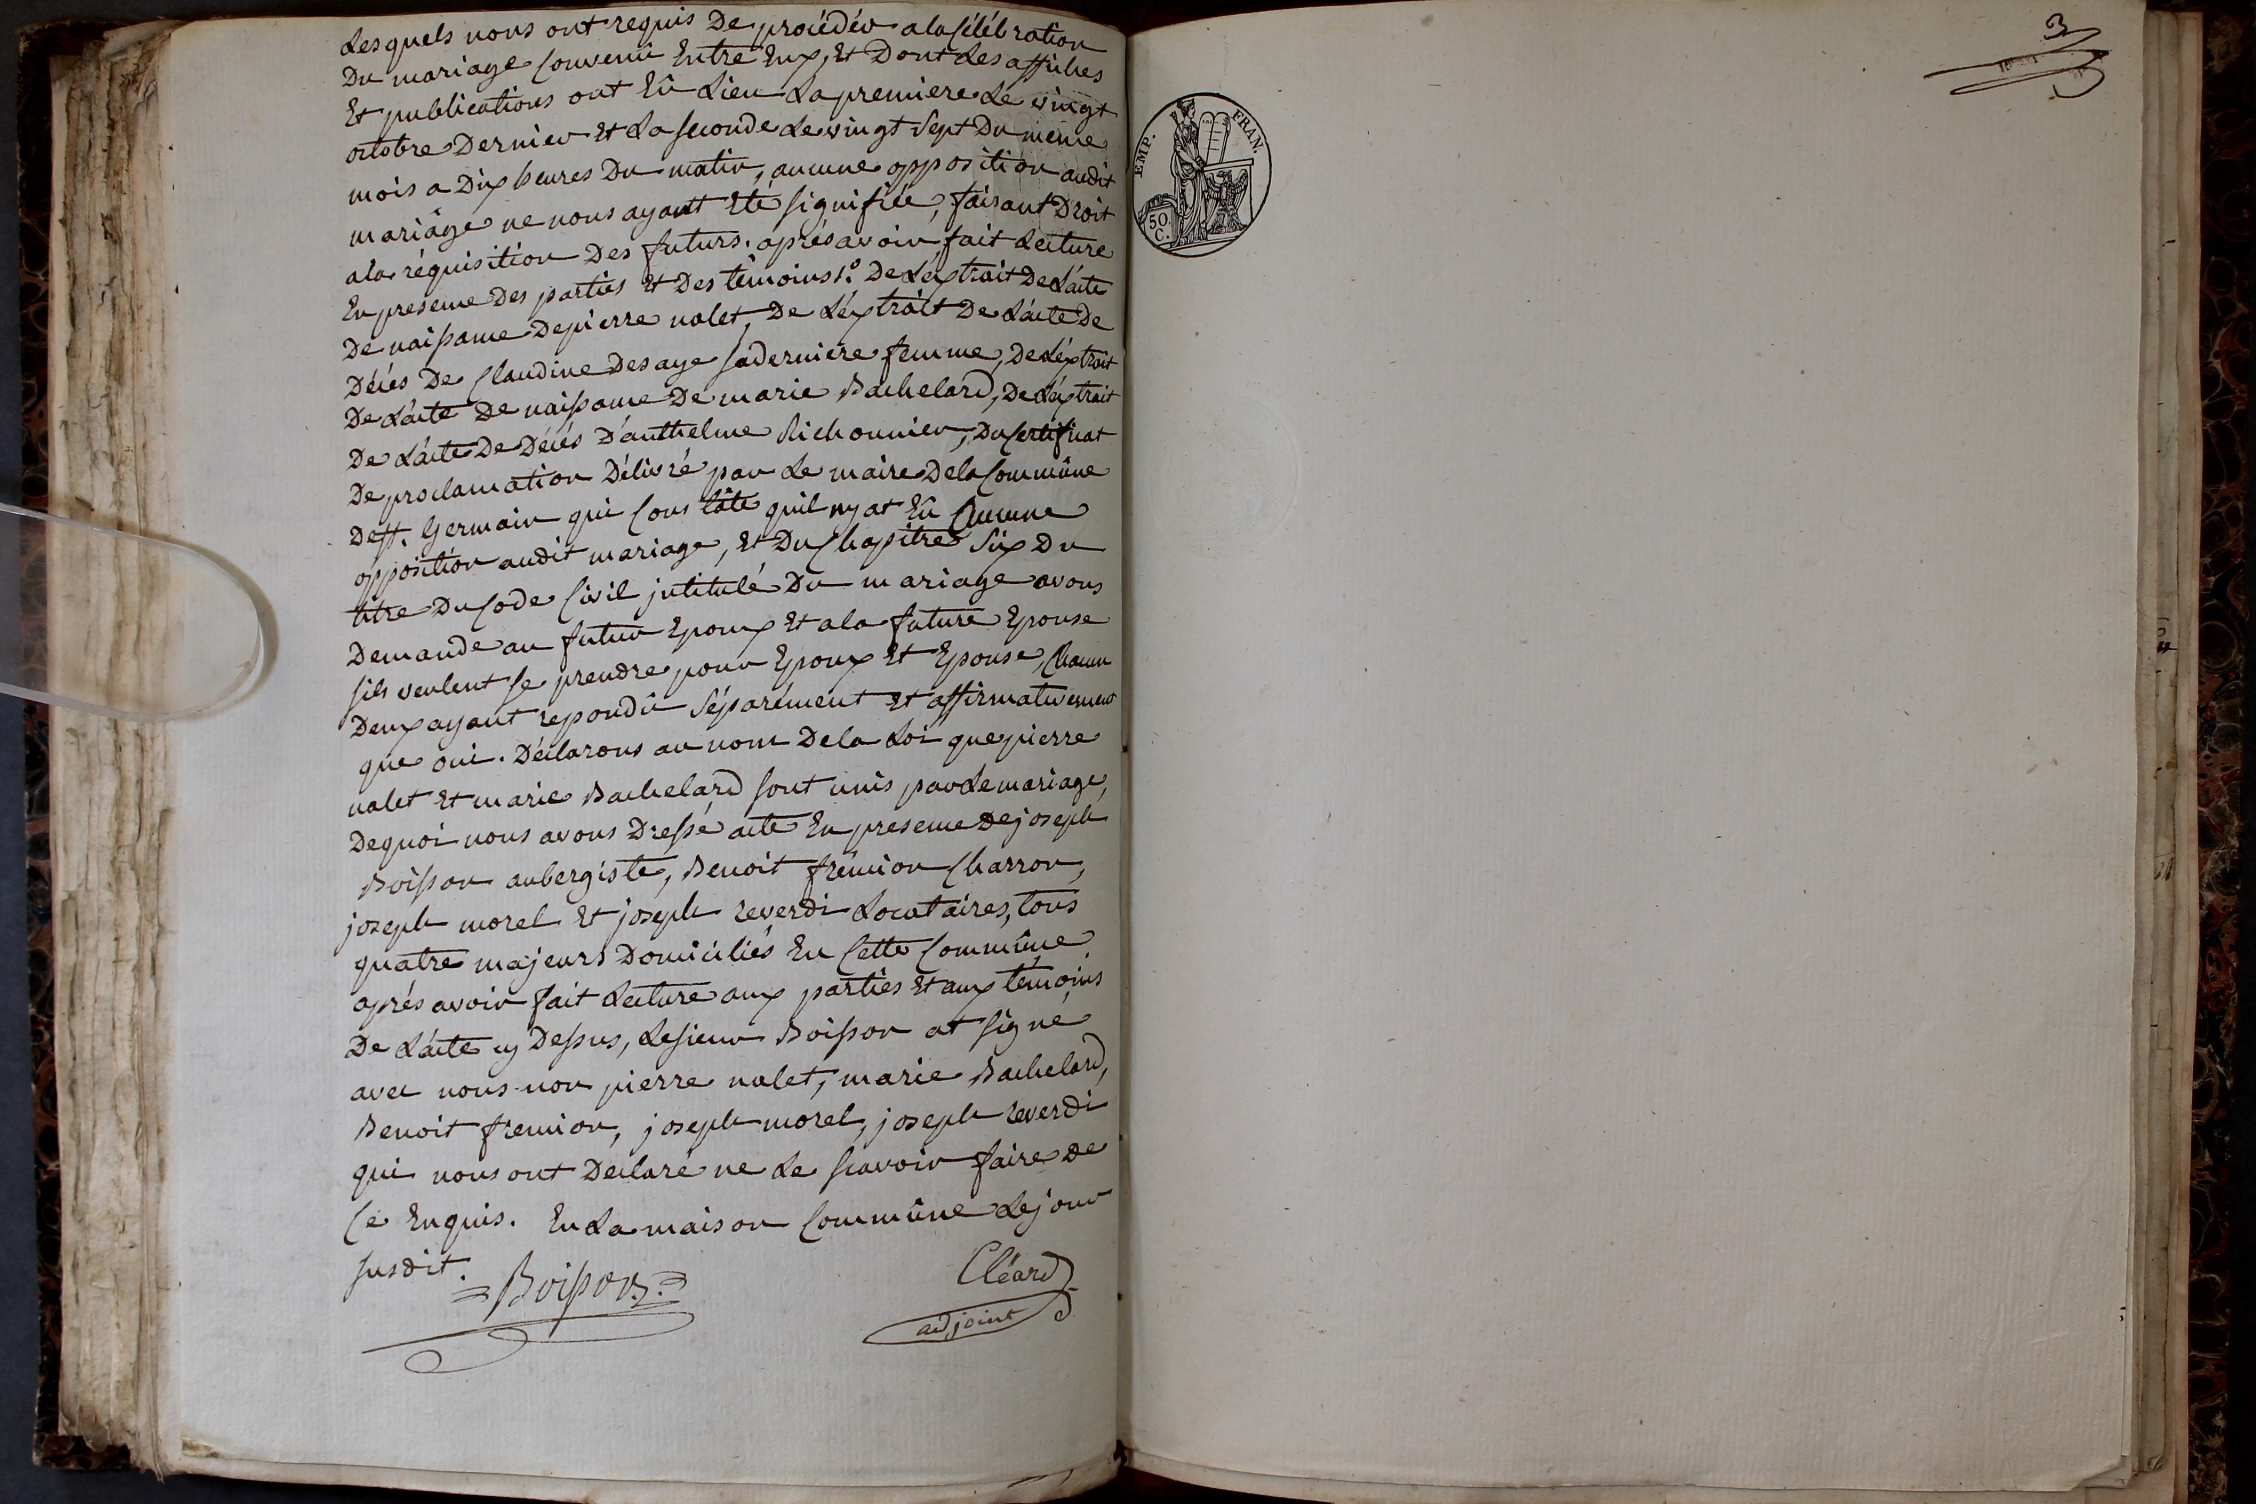 Lesquels nous ont requis De procédér a la Célébration
Du mariage Convenû Entre Eux, Et Dont Les affiches
Et publications ont Eû Lieu La premiere Le vingt
octobre Dernier Et La seconde Le vingt Sept Du même
mois a Dix heures Du matin, aucune opposition audit
mariâge ne nous ayant Eté signifiée, faisant Droit
a la réquisition Des futurs. aprés avoir fait Lecture
En presence Des parties Et Des témoins 1.° De L'éxtrait De L'acte
De naissance De pierre nalet, De L'éxtrait De L'acte De
Décés De Claudine Desaye sa derniere femme, De L'éxtrait
De L'acte De naissance De marie Bachelard, De L'éxtrait
De L'acte De Décés D'anthelme Richonnier, Du Certificat
De proclamation Délivré par Le maire De la Commûne
De St. Germain qui Constâte quil ny at Eû Aucune
opposition audit mariage, Et Du Chapitre Six Du
titre Du Code Civil jntitulé Du mariage avons
Demande au futur Epoux Et a la future Epouse
sils veulent se prendre pour Epoux Et Epouse, Chacun
Deux ayant repondû Séparément Et affirmativement
que oui. Déclarons au nom De la Loi que pierre
nalet Et marie Bachelard sont unis par Le mariage,
De quoi nous avons Dressé acte En presence De joseph
Boisson aubergiste, Benoit frémion Charron,
joseph morel Et joseph reverdi Locataires, tous
quatre majeurs Domiciliés En Cette Commûne
aprés avoir fait Lecture aux parties Et aux témoins
De L'acte cy Dessus, Le sieur Boisson at signé
avec nous non pierre nalet, marie Bachelard,
Benoit fremion, joseph morel, joseph reverdi
qui nous ont Declaré ne Le scavoir faire De
Ce Enquis. En La maison Commûne Le jour
susdit.
Boisson
Cléard
adjoint
3
EMP. FRAN.
50
C.